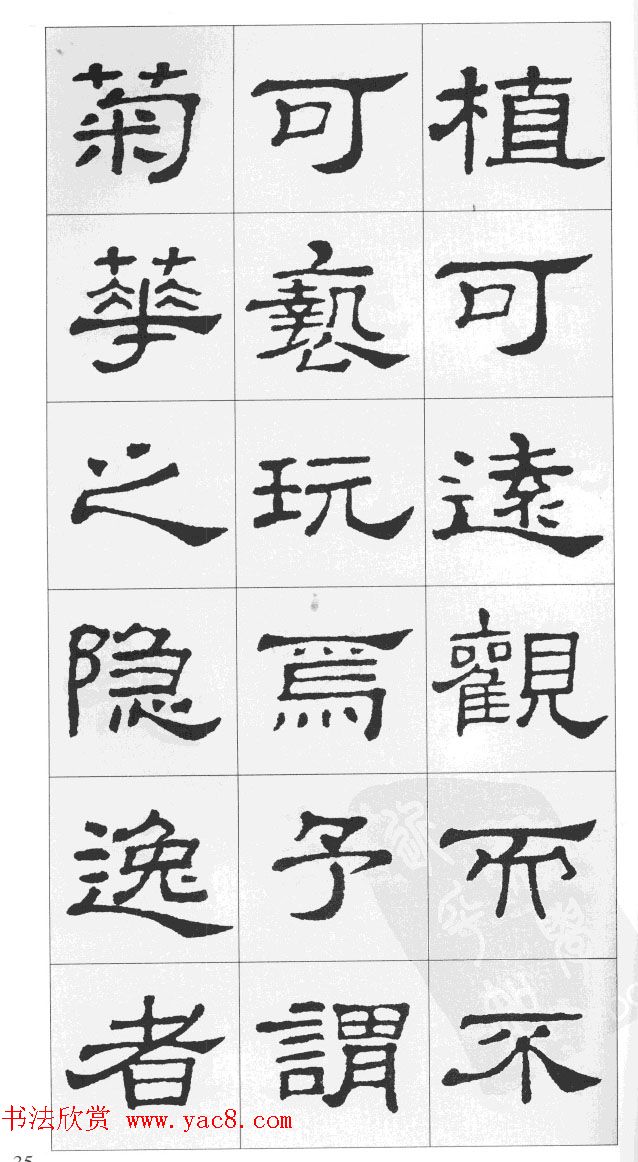 植可遠觀而不
可褻玩焉予謂
菊華之隐逸者
书法欣赏 www.yac8.com